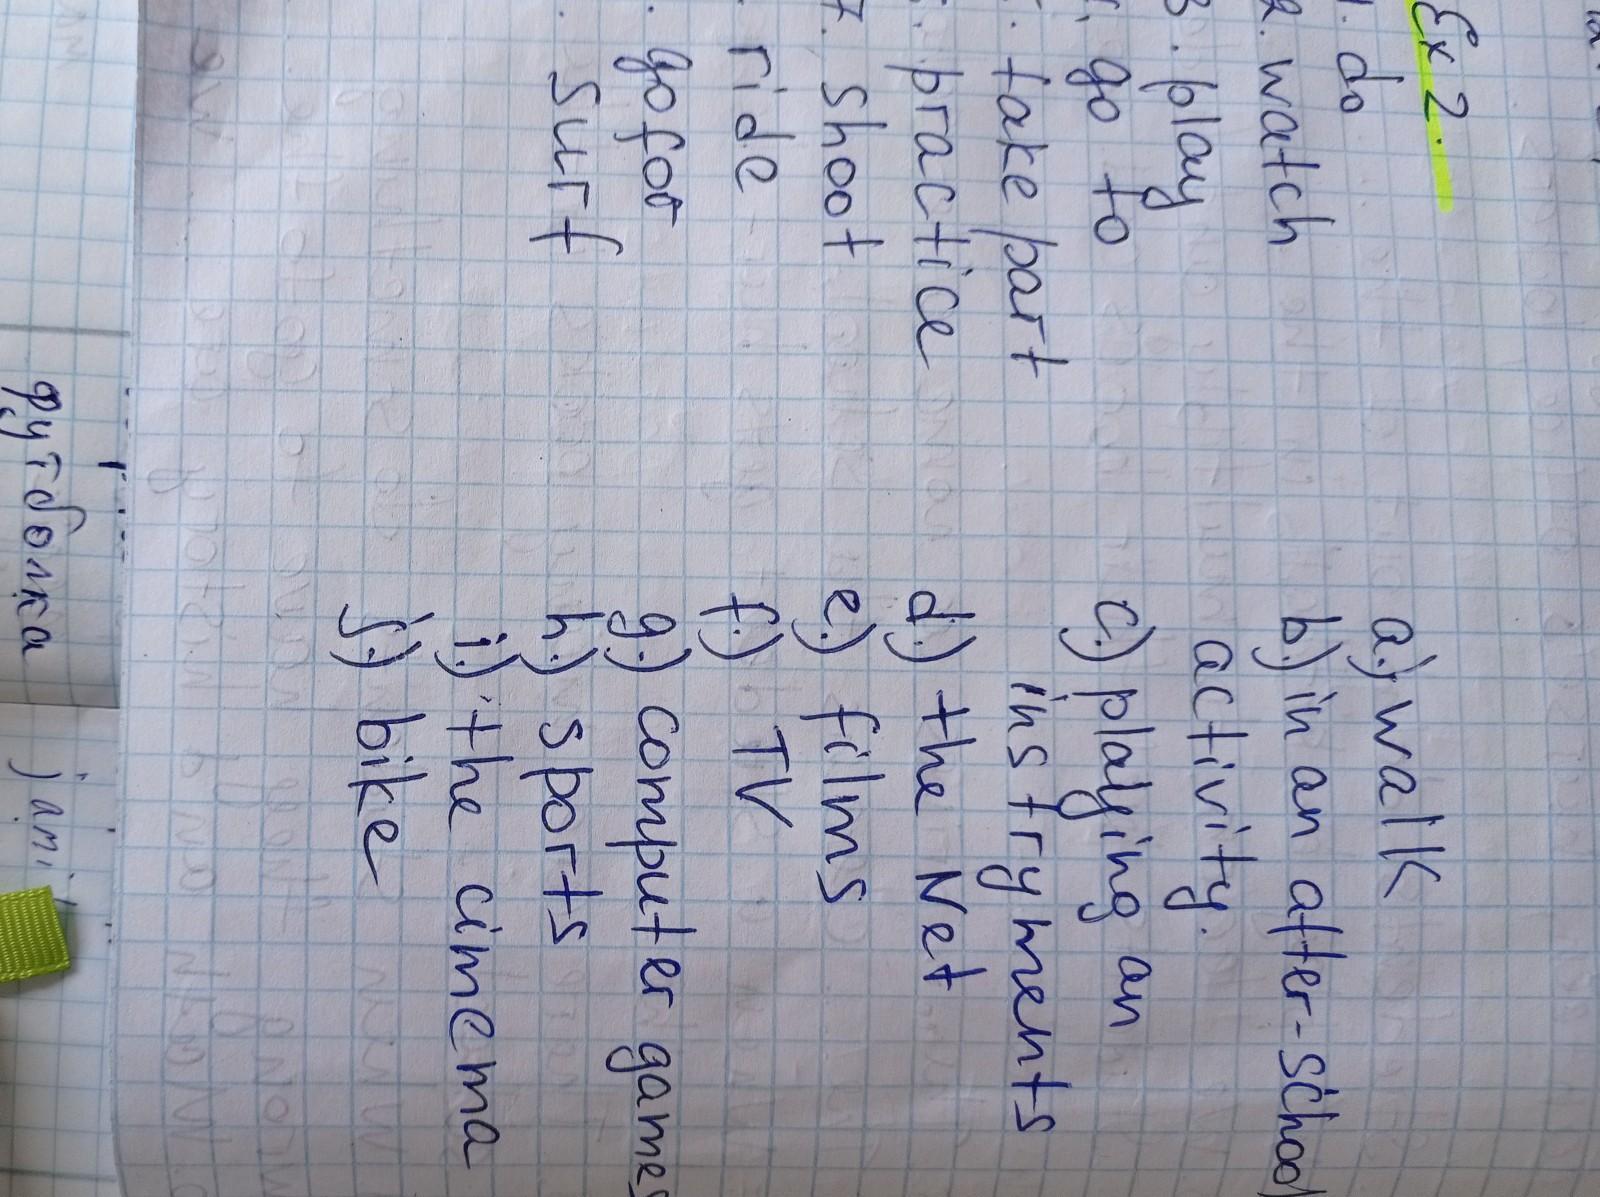 Ex 2.
1. do
2. watch
3. play
go to
take part
practice
7. shoot
ride
go for
surf
a.) walk
b.) in an after-school
activity.
c.) playing an
instryments
d.) the Net
e.) films
f.) TV
g.) computer games
h.) sports
i.) the cinema
j.) bike
футболка